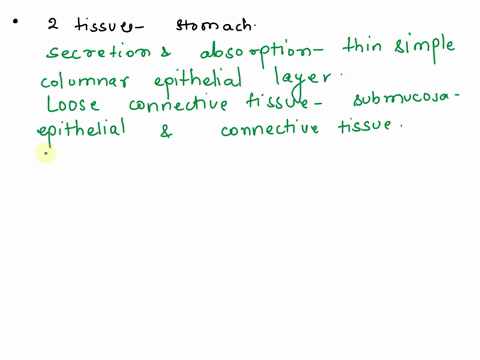 • 2 tissues- stomach.
secretion & absorption- thin simple
columnar epithelial layer.
Loose connective tissue- submucosa-
epithelial & connective tissue.